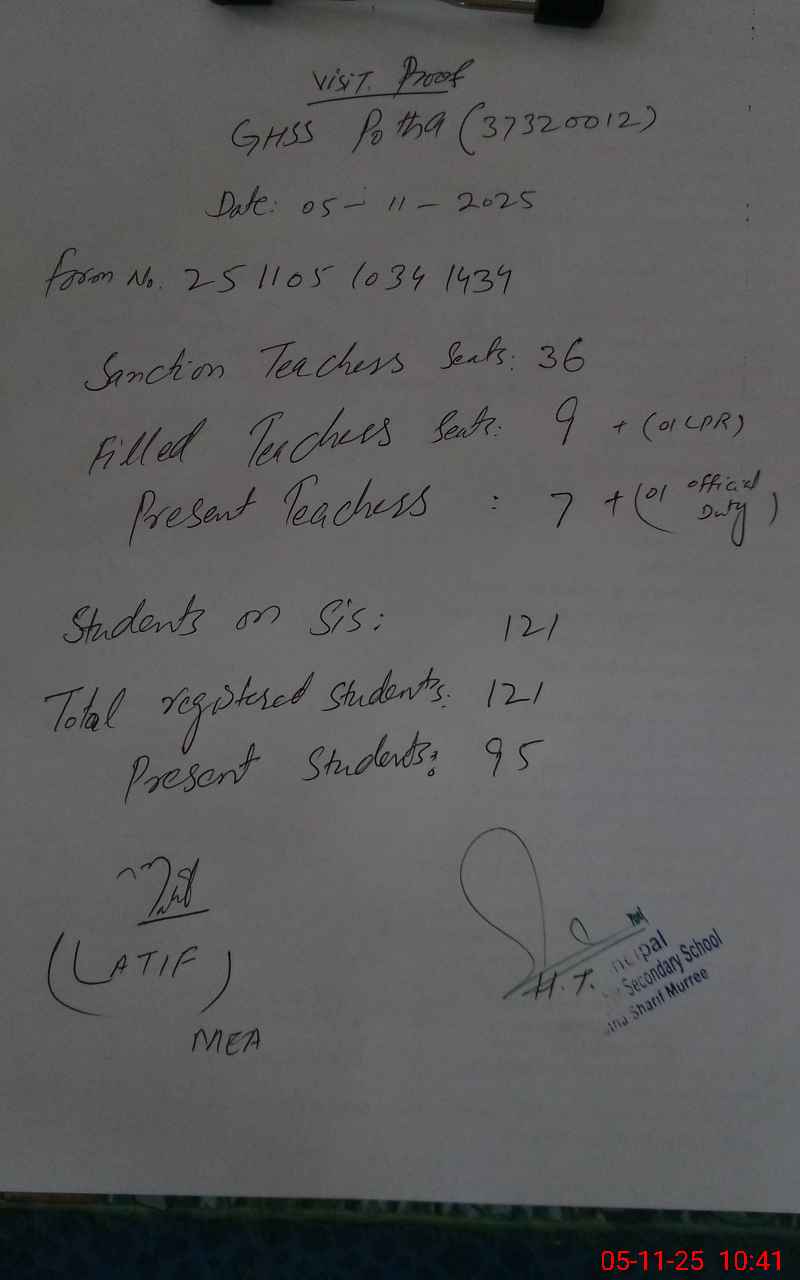 Visit Proof
GHSS Potha (37320012)
Date: 05 - 11 - 2025
Form No. 251105 1034 1434
Sanction Teachers Seats: 36
Filled Teachers Seats: 9 + (01 LPR)
Present Teachers : 7 + (01 official Duty)
Students on Sis: 121
Total registered students: 121
Present Students: 95
(LATIF)
MEA
H.T.
ncipal
Secondary School
Sharif Murree
05-11-25 10:41